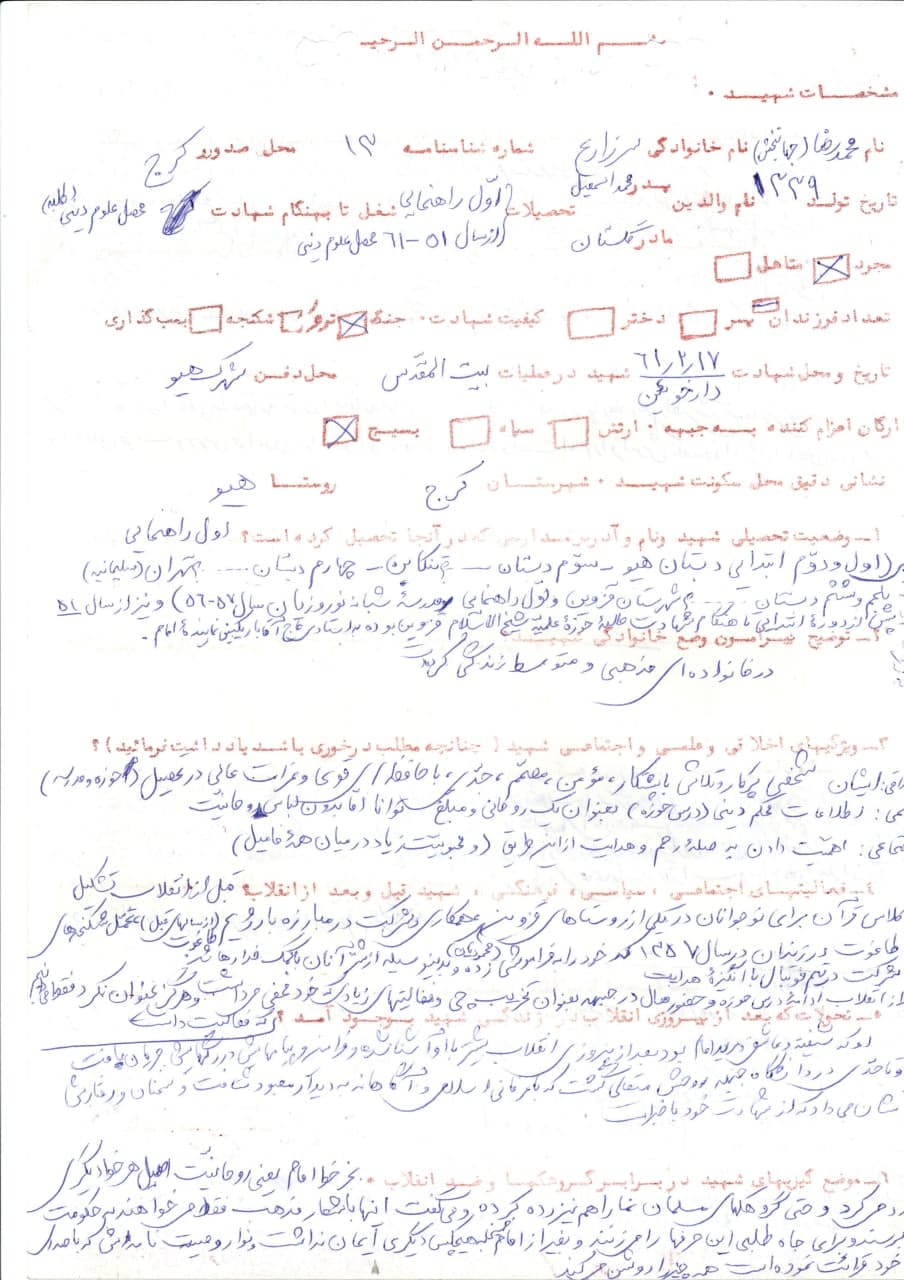 بسم اللـه الـرحمـن الـرحیـ
مشخصـات شهیـد .
نام محمدرضا (جهانبخش) نام خانوادگی سرزارع شماره شناسنامه ۱۳ محل صدور کرج
تاریخ تولد ۱۳۳۹ نام والدین پدر محمد اسمعیل تحصیلات اول راهنمائی شغل تا بهنگام شهادت محصل علوم دینی (طلبه)
مادر گلستان (از سال ۵۱-۶۱ محصل علوم دینی
مجرد متاهل
تعداد فرزندان پسر دختر کیفیت شهادت . جنگ ترور شکنجه بمب گذاری
تاریخ و محل شهادت ۶۱/۲/۱۷ دارخوئین شهید در عملیات بیت المقدّس محل دفن شهرک هیو
ارگان اعزام کننده بـه جبهه . ارتش سپاه بسیج
نشانی دقیق محل سکونت شهیـد . شهرستـان کرج روستـا هیو
۱- وضعیت تحصیلی شهید ونام و آدرس مدارسی که در آنجا تحصیل کرده است؟ اول راهنمائی
(اول و دوّم ابتدائی دبستان هیو - سوّم دبستان - چهارم دبستان ..... تهران (سلیمانیه)
پنجم و ششم دبستان ..... شهرستان قزوین و اول راهنمائی مدرسهٔ شبانه نوروزیان سال ۵۷-۵۶) و نیز از سال ۵۱
پس از دورهٔ ابتدائی تا هنگام شهادت طلبهٔ حوزهٔ علمیه شیخ الاسلام قزوین بوده به استادی حاج آقا باریک بینی نمایندهٔ امام .
۲- توضیح پیرامون وضع خانوادگی شهیـد
در خانواده ای مذهبی و متوسط زندگی کرده
۳- ویژگیهای اخلاقی و علمـی و اجتماعـی شهید ( چنانچه مطلب درخوری باشد یادداشت فرمائید ) ؟
ایشان شخصی پرکار و تلاش با پشتکار ، مؤمن ، مصمّم ، جدّی ، با حافظه ای قوی و نمرات عالی در تحصیل (حوزه و مدرسه)
اطلاعات محکم دینی (درس حوزه) بعنوان یک روحانی و مبلغ توانا اما بدون لباس روحانیت
اهمیّت دادن به صلهٔ رحم و هدایت از این طریق (و محبوبیّت زیاد در میان همهٔ فامیل)
۴- فعالیتهـای اجتماعـی ، سیاسـی ، فرهنگـی ، شهید قبل و بعد از انقلاب؟ قبل از انقلاب تشکیل
کلاس قرآن برای نوجوانان در یکی از روستاهای قزوین همکاری و شرکت در مبارزه با رژیم (از سالهای قبل) تحمل شکنجه های
طاغوت در زندان در سال ۱۳۵۷ که خود را به فراموشی زده و بدینوسیله از شر آنان
شرکت در تیم فوتبال با انگیزهٔ هدایت
از انقلاب ادامهٔ درس حوزه و حضور فعال در جبهه بعنوان تخریب چی و فعالیتهای زیادی که خود مخفی میداشت و هرگز عنوان نکرد
۵- تحولات که بعد از پیـروزی انقلاب در زندگـی شهید بـوجـود آمـد ؟ که فعالیت داشت
او که شیفته و عاشق و مرید امام بود بعد از پیروزی انقلاب بیشتر با او آشنا شده و فرامین و پیامهایش در رگهایش جریان یافت
و تا حدّی در دانشگاه جبهه روحش متعالی گشت که آگاهانه به دیدار معبود شتافت و سخنان و رفتارش
نشان می داد که از شهادت خود با خبر است
۶- موضع گیریهای شهید در بـرابـر گـروهکهـا و ضـد انقلاب . بجز خط امام یعنی روحانیّت اصیل هر خط دیگری
رد می کرد و حتی گروهکهای مسلمان نما را هم نیز رد کرده و می گفت اینها با شعار مذهب فقط می خواهند به حکومت
برسند و برای جاه طلبی این حرفها را می زنند و بغیر از امام به هیچکس دیگری ایمان نداشت و نوار وصیت نامه اش که با صدای
خود قرائت نموده است همه چیز را روشن می کند